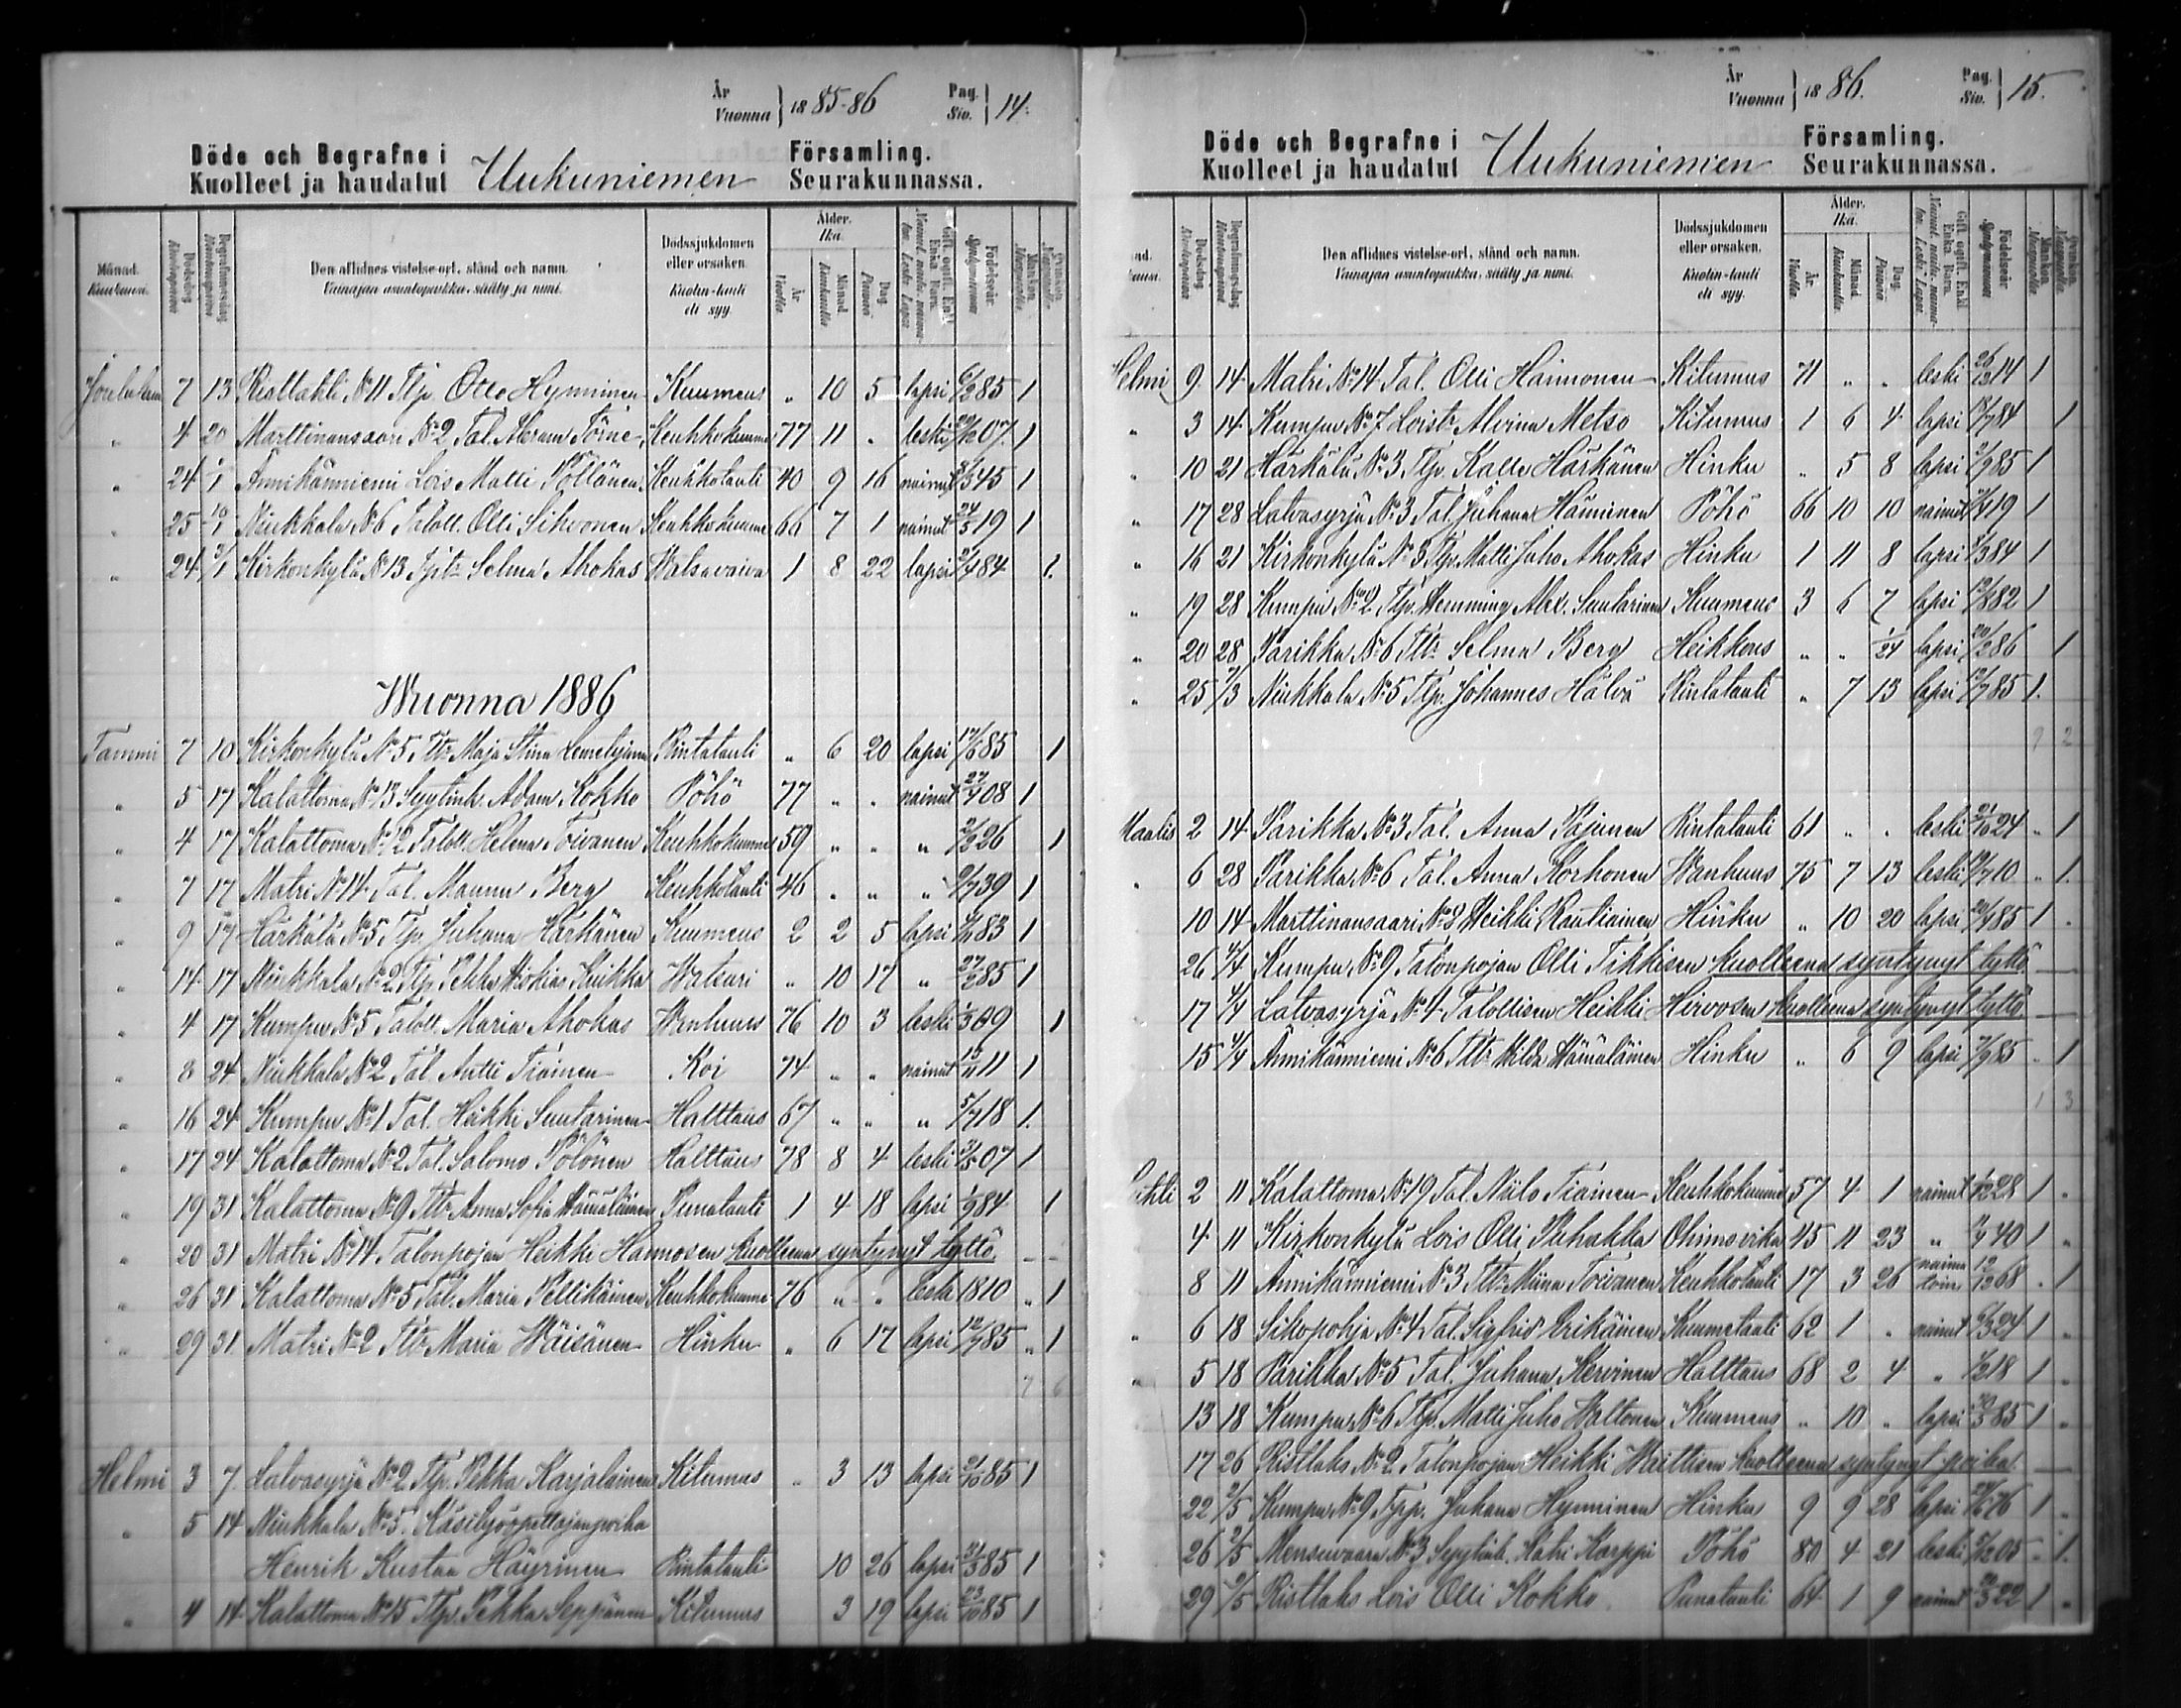 År
Vuonna } 18 85-86 Pag. Siv. } 14.
Döde och Begrafne i Uukuniemen Församling.
Kuolleet ja haudatut Seurakunnassa.
Månad. Kuukausi. Dödsdag Kuolinpäivä Begrafningsdag Hautauspäivä Den aflidnes vistelse-ort, stånd och namn. Vainajan asuntopaikka, sääty ja nimi. Dödssjukdomen eller orsaken. Kuolin-tauti eli syy. Ålder. Ikä. År Vuotta. Månad Kuukautta. Dag Päivää Gift, ogift, Enkl. Enka Barn. Födelseår. Syntymävuosi Mankön. Miespuolia. Qvinkön. Naispuolia.
Joulukuu 7 13 Ristlahti No 11 Tlp. Otto Hynninen Kuumeus " 10 5 lapsi 6/2 85 1
" 4 20 Marttinansaari No 2 Tal. Abram Törne Keuhkokuume 77 11 . leski 07 1
" 24 1/1 Ännikänniemi Lois Matti Pöllänen Keuhkotauti 40 9 16 nainut 45 1
" 25 10/1 Niukkala No 6 Taloll. Olli Sihvonen Keuhkokuume 66 7 1 nainut 24/5 19 1
" 24 3/1 Kirkonkylä No 13 Tptr Selma Ahokas Watsavaiva 1 8 22 lapsi 2/4 84 1.
Wuonna 1886
Tammi 7 10 Kirkonkylä No 5 Tltr Maja Stina Lemetyinen Rintatauti " 6 20 lapsi 17/6 85 1
" 5 17 Kalattoma No 13 Syytink. Adam Kokko Pöhö 77 " " nainut 08 1
" 4 17 Kalattoma No 12 Taloll. Helena Toivanen Keuhkokuume 59 " " " 2/2 26 1
" 7 17 Matri No 14 Tal. Maunu Berg Keuhkotauti 46 " " " 2/7 39 1
" 9 17 Härkälä No 5 Tlp. Juhana Härkänen Kuumeus 2 2 5 lapsi 4/11 83 1
" 14 17 Niukkala No 2 Tlp. Pekka Hiskias Kuikka Watsuri " 10 17 " 27/2 85 1
" 4 17 Kumpu No 5 Taloll. Maria Ahokas Wanhuus 76 10 3 leski 1/3 09 1
" 8 24 Niukkala No 2 Tal. Antti Tiainen Koi 74 " " nainut 13/11 11 1
" 16 24 Kumpu No 1 Tal. Heikki Suutarinen Halttaus 67 " " " 5/7 18 1.
" 17 24 Kalattoma No 2 Tal. Salomo Pölönen Halttaus 78 8 4 leski 07 1
" 19 31 Kalattoma No 9 Tltr Anna Sofia Hämäläinen Punatauti 1 4 18 lapsi 1/9 84 1
" 20 31 Matri No 14 Talonpojan Heikki Hannosen kuolleena syntynyt tyttö. – –
" 26 31 Kalattoma No 5 Tal. Maria Pellikäinen Keuhkokuume 76 " " leski 1810 " 1
" 29 31 Matri No 2 Tltr Maria Wäisänen Hinku " 6 17 lapsi 12/7 85 " 1
7 6
Helmi 3 7 Latvasyrjä No 2 Tlp. Pekka Karjalainen Kitumus " 3 13 lapsi 2/10 85 1
" 5 14 Niukkala No 5. Käsityöopettajanpoika
Henrik Kustaa Häyrinen Rintatauti 10 26 lapsi 85 1
" 4 14 Kalattoma No 15 Tlp. Pekka Seppänen Kitumus 3 19 lapsi 23/10 85 1
År
Vuonna } 18 86. Pag. Siv. } 15.
Döde och Begrafne i Uukuniemen Församling.
Kuolleet ja haudatut Seurakunnassa.
Dödsdag Kuolinpäivä Begrafningsdag Hautauspäivä Den aflidnes vistelse-ort, stånd och namn. Vainajan asuntopaikka, sääty ja nimi. Dödssjukdomen eller orsaken. Kuolin-tauti eli syy. Ålder. Ikä. År Vuotta. Månad Kuukautta. Dag Päivää Gift, ogift, Enkl. Enka Barn. Födelseår Syntymävuosi Mankön. Miespuolia. Qvinkön. Naispuolia.
Helmi 9 14 Matri No 14 Tal. Olli Hannonen Kitumus 71 " " leski 14 1
" 3 14 Kumpu No 7 Loistr Alvina Metso Kitumus 1 6 4 lapsi 84 1
" 10 21 Härkälä No 3 Tlp. Kalle Härkänen Hinku " 5 8 lapsi 2/9 85 1
" 17 28 Latvasyrjä No 3 Tal. Juhana Häninen Pöhö 66 10 10 nainut 19 1
" 16 21 Kirkonkylä No 5 Tlp. Matti Juho Ahokas Hinku 1 11 8 lapsi 8/3 84 1
" 19 28 Kumpu No 2 Tlp. Hemming Alex. Suutarinen Kuumeus 3 6 7 lapsi 12/8 82 1
" 20 28 Parikka No 6 Tltr Selma Berg Heikkous " " 1/24 lapsi 20/2 86 1
" 25 7/3 Niukkala No 5 Tlp. Johannes Hälvä Rintatauti " 7 13 lapsi 12/7 85 1.
9 2
Maalis 2 14 Parikka No 3 Tal. Anna Pajunen Rintatauti 61 " " leski 21/10 24 " 1
" 6 28 Parikka No 6 Tal. Anna Korhonen Wanhuus 75 7 13 leski 10 " 1.
10 14 Marttinansaari No 2 Heikki Rautiainen Hinku " 10 20 lapsi 20/4 85 1 "
26 4/4 Kumpu No 9 Talonpojan Olli Tikkisen kuolleena syntynyt tyttö
17 4/4 Latvasyrjä No 4 Talollisen Heikki Hirvosen kuolleena syntynyt tyttö
15 4/4 Ännikänniemi No 6 Tltr Hilda Hämäläinen Hinku " 6 9 lapsi 85 " 1
1 3
Huhti 2 11 Kalattoma No 19 Tal. Niilo Tiainen Keuhkokuume 57 4 1 nainut 28 1 "
4 11 Kirkonkylä Lois Olli Puhakka 45 11 23 " 40 1 "
8 11 Ännikänniemi No 3 Tltr Miina Toivanen Keuhkotauti 17 3 26 naimatoin 12/12 68 . 1
" 6 18 Sikopohja No 4 Tal. Sigfrid Erikäinen Kuumetauti 62 1 " nainut 6/3 24 1 "
" 5 18 Parikka No 5 Tal. Juhana Kervinen Halttaus 68 2 4 " 1/2 18 1 "
13 18 Kumpu No 6 Tlp. Matti Juho Waltonen Kuumeus " 10 " lapsi 85 1 "
17 26 Ristlaks No 2 Talonpojan Heikki kuolleena syntynyt poika
22 2/5 Kumpu No 9 Tpp. Juhana Hynninen Hinku 9 9 28 lapsi 24/6 76 1 "
26 2/5 Mensuvaara No 3 Syytink. Katri Karppi Pöhö 80 4 21 leski 5/12 05 " 1.
29 2/5 Ristlaks Lois Olli Kokko Punatauti 64 1 9 nainut 20/3 22 1 "